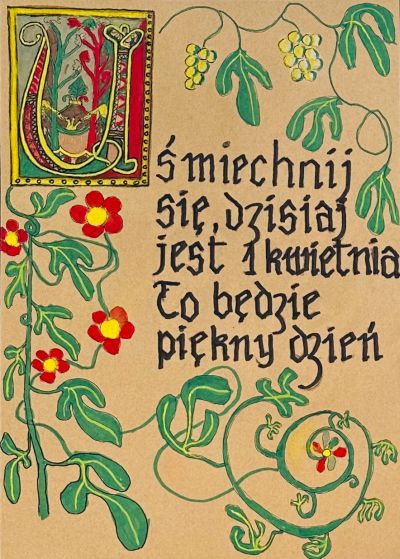 Uśmiechnij
się, dzisiaj
jest 1 kwietnia
To będzie
piękny dzień